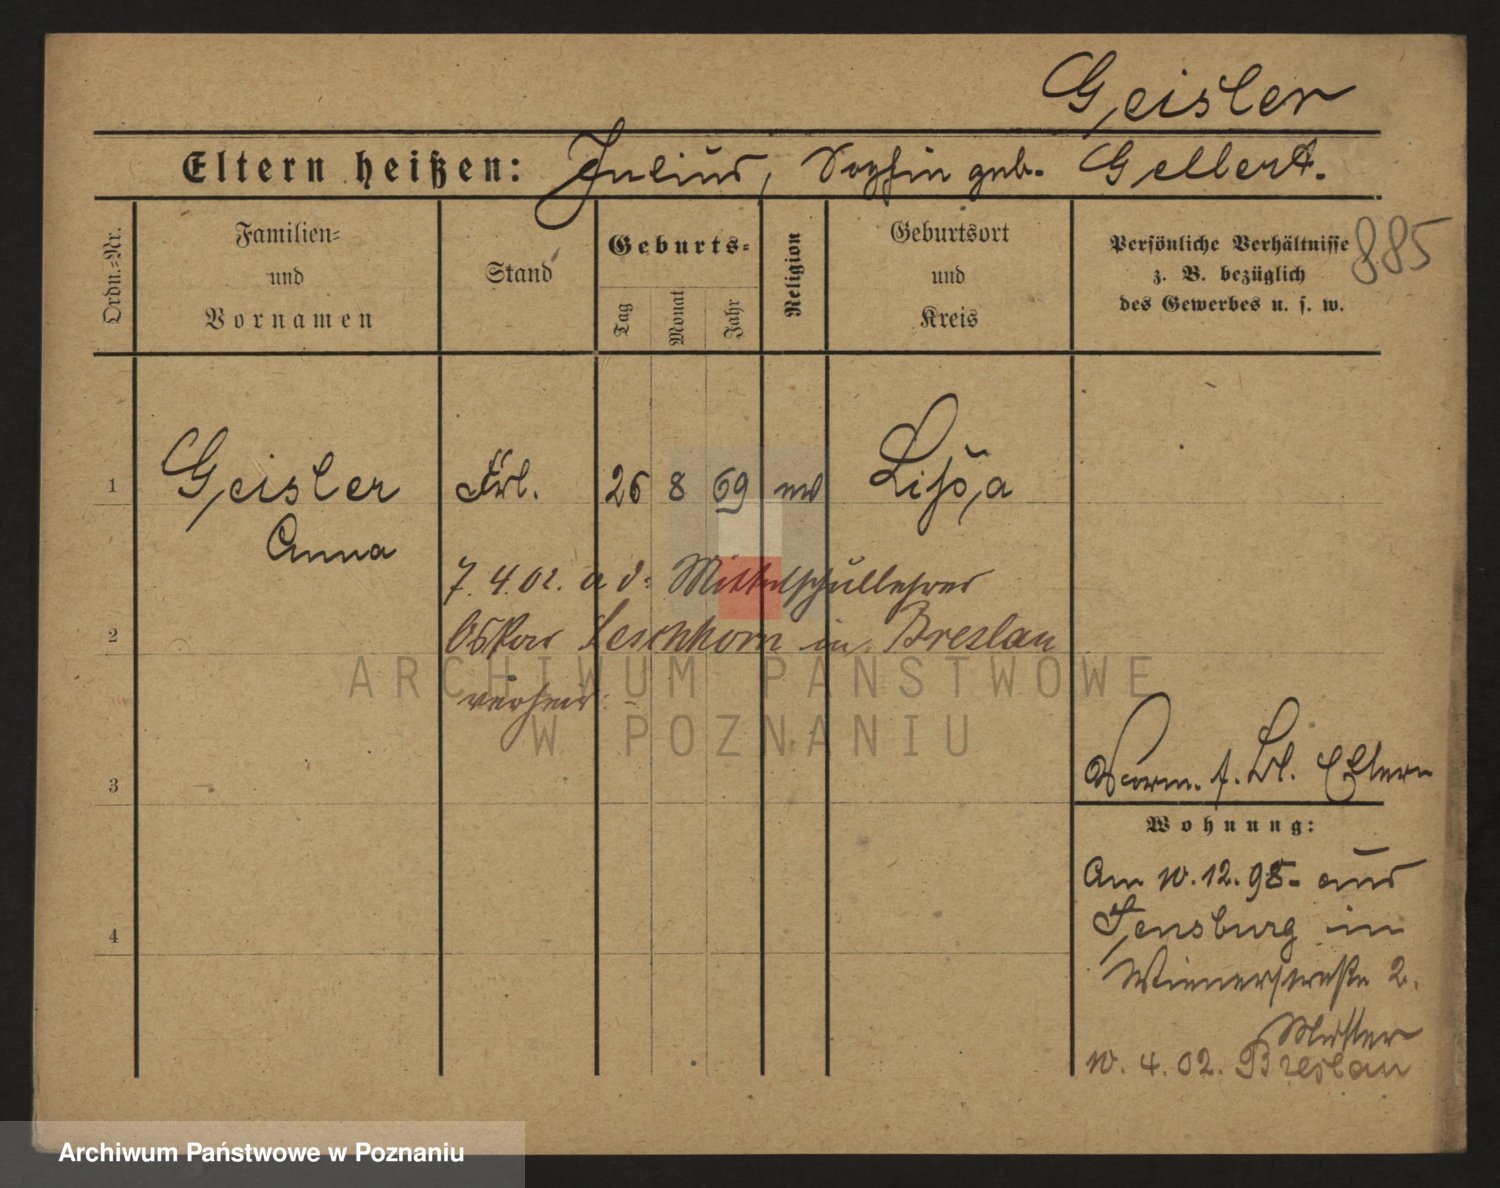 Geisler
Eltern heißen: Julius, Sophie geb. Gellert.
Ordn.=Nr.
Familien=
und
Vornamen
Stand
Geburts=
Tag
Monat
Jahr
Religion
Geburtsort
und
Kreis
Persönliche Verhältnisse
z. B. bezüglich
des Gewerbes u. s. w.
885
1
Geisler
Anna
Frl.
26
8
69
Lissa
7. 4. 02. a d. Mittelschullehrer
2
Oskar Leschhorn in Breslau
verheir.
ARCHIWUM PAŃSTWOWE
W POZNANIU
3
Eltern
Wohnung:
Am 10. 12. 95. aus
4
Sensburg in
Wienerstraße 2.
Mutter
10. 4. 02. Breslau
Archiwum Państwowe w Poznaniu